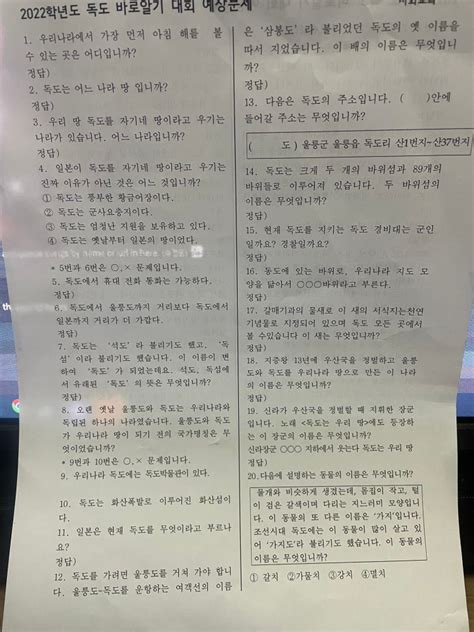 2022학년도 독도 바로알기 대회 예상문제
1. 우리나라에서 가장 먼저 아침 해를 볼
수 있는 곳은 어디입니까?
정답)
2. 독도는 어느 나라 땅 입니까?
정답)
3. 우리 땅 독도를 자기네 땅이라고 우기는
나라가 있습니다. 어느 나라입니까?
정답)
4. 일본이 독도를 자기네 땅이라고 우기는
진짜 이유가 아닌 것은 어느 것입니까?
① 독도는 풍부한 황금어장이다.
② 독도는 군사요충지이다.
③ 독도는 엄청난 지원을 보유하고 있다.
④ 독도는 옛날부터 일본의 땅이었다.
* 5번과 6번은 ○,× 문제입니다.
5. 독도에서 휴대 전화 통화는 가능하다.
정답)
6. 독도에서 울릉도까지 거리보다 독도에서
일본까지 거리가 더 가깝다.
정답)
7. 독도는 '석도' 라 불리기도 했고, '독
섬' 이라 불리기도 했습니다. 이 이름이 변
하여 '독도' 가 되었는데요. 석도, 독섬에
서 유래된 '독도' 의 뜻은 무엇입니까?
정답)
8. 오랜 옛날 울릉도와 독도는 우리나라와
독립된 하나의 나라였습니다. 울릉도와 독도
가 우리나라 땅이 되기 전의 국가명칭은 무
엇이었습니까?
* 9번과 10번은 ○,× 문제입니다.
9. 우리나라 독도에는 독도박물관이 있다.
10. 독도는 화산폭발로 이루어진 화산섬이
다.
11. 일본은 현재 독도를 무엇이라고 부르나
요?
정답)
12. 독도를 가려면 울릉도를 거쳐 가야 합니
다. 울릉도-독도를 운항하는 여객선의 이름
은 '삼봉도' 라 불리었던 독도의 옛 이름을
따서 지었습니다. 이 배의 이름은 무엇입니
까?
정답)
13. 다음은 독도의 주소입니다. ( )안에
들어갈 주소는 무엇입니까?
( 도) 울릉군 울릉읍 독도리 산1번지~산37번지
14. 독도는 크게 두 개의 바위섬과 89개의
바위들로 이루어져 있습니다. 두 바위섬의
이름은 무엇입니까?
정답)
15. 현재 독도를 지키는 독도 경비대는 군인
일까요? 경찰일까요?
정답)
16. 동도에 있는 바위로, 우리나라 지도 모
양을 닮아서 ○○○바위라고 부른다.
정답)
17. 갈매기과의 물새로 이 새의 서식지는천연
기념물로 지정되어 있으며 독도 모든 곳에서
볼 수있습니다 이 새는 무엇입니까?
정답)
18. 지증왕 13년에 우산국을 정벌하고 울릉
도와 독도를 우리나라 땅으로 만든 이 나라
의 이름은 무엇입니까?
정답)
19. 신라가 우산국을 정벌할 때 지휘한 장군
입니다. 노래 <독도는 우리 땅>에도 등장하
는 이 장군의 이름은 무엇입니까?
신라장군 ○○○ 지하에서 웃는다 독도는 우리 땅
정답)
20.다음에 설명하는 동물의 이름은 무엇입니까?
물개와 비슷하게 생겼는데, 몸집이 작고, 털
이 검은 갈색이며 다리는 지느러미 모양입니
다. 이 동물의 또 다른 이름은 '가지'입니다.
조선시대 독도에는 이 동물이 많이 살고 있
어 '가지도'라 불리기도 했습니다. 이 동물의
이름은 무엇입니까?
① 갈치 ②가물치 ③강치 ④멸치